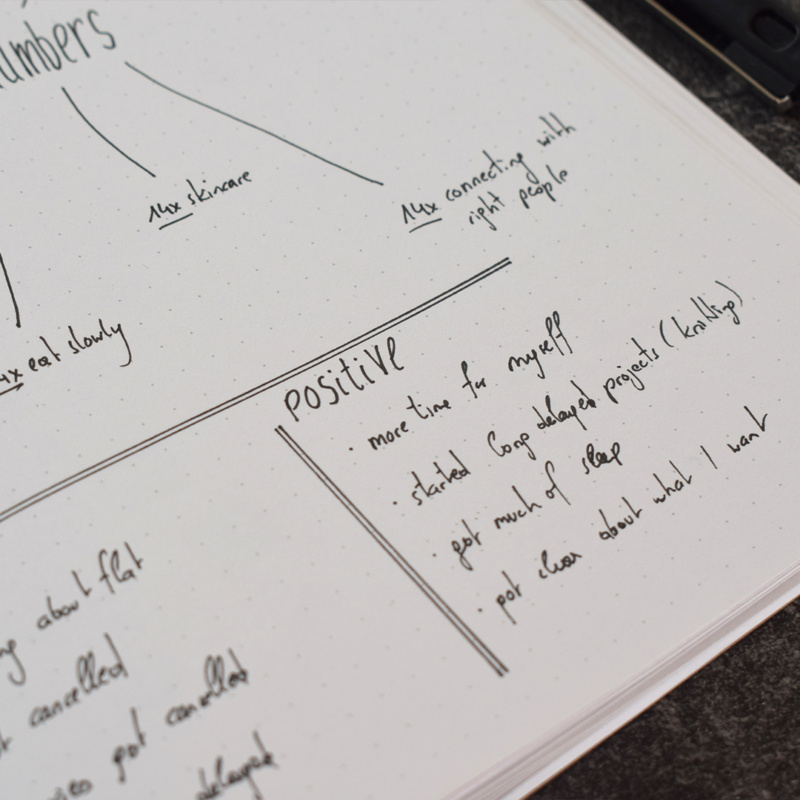 umbers
14x skincare
14x connecting with
right people
4x eat slowly
positive
• more time for myself
• started long delayed projects (knitting)
• got much of sleep
• got clear about what I want
about flat
cancelled
got cancelled
delayed